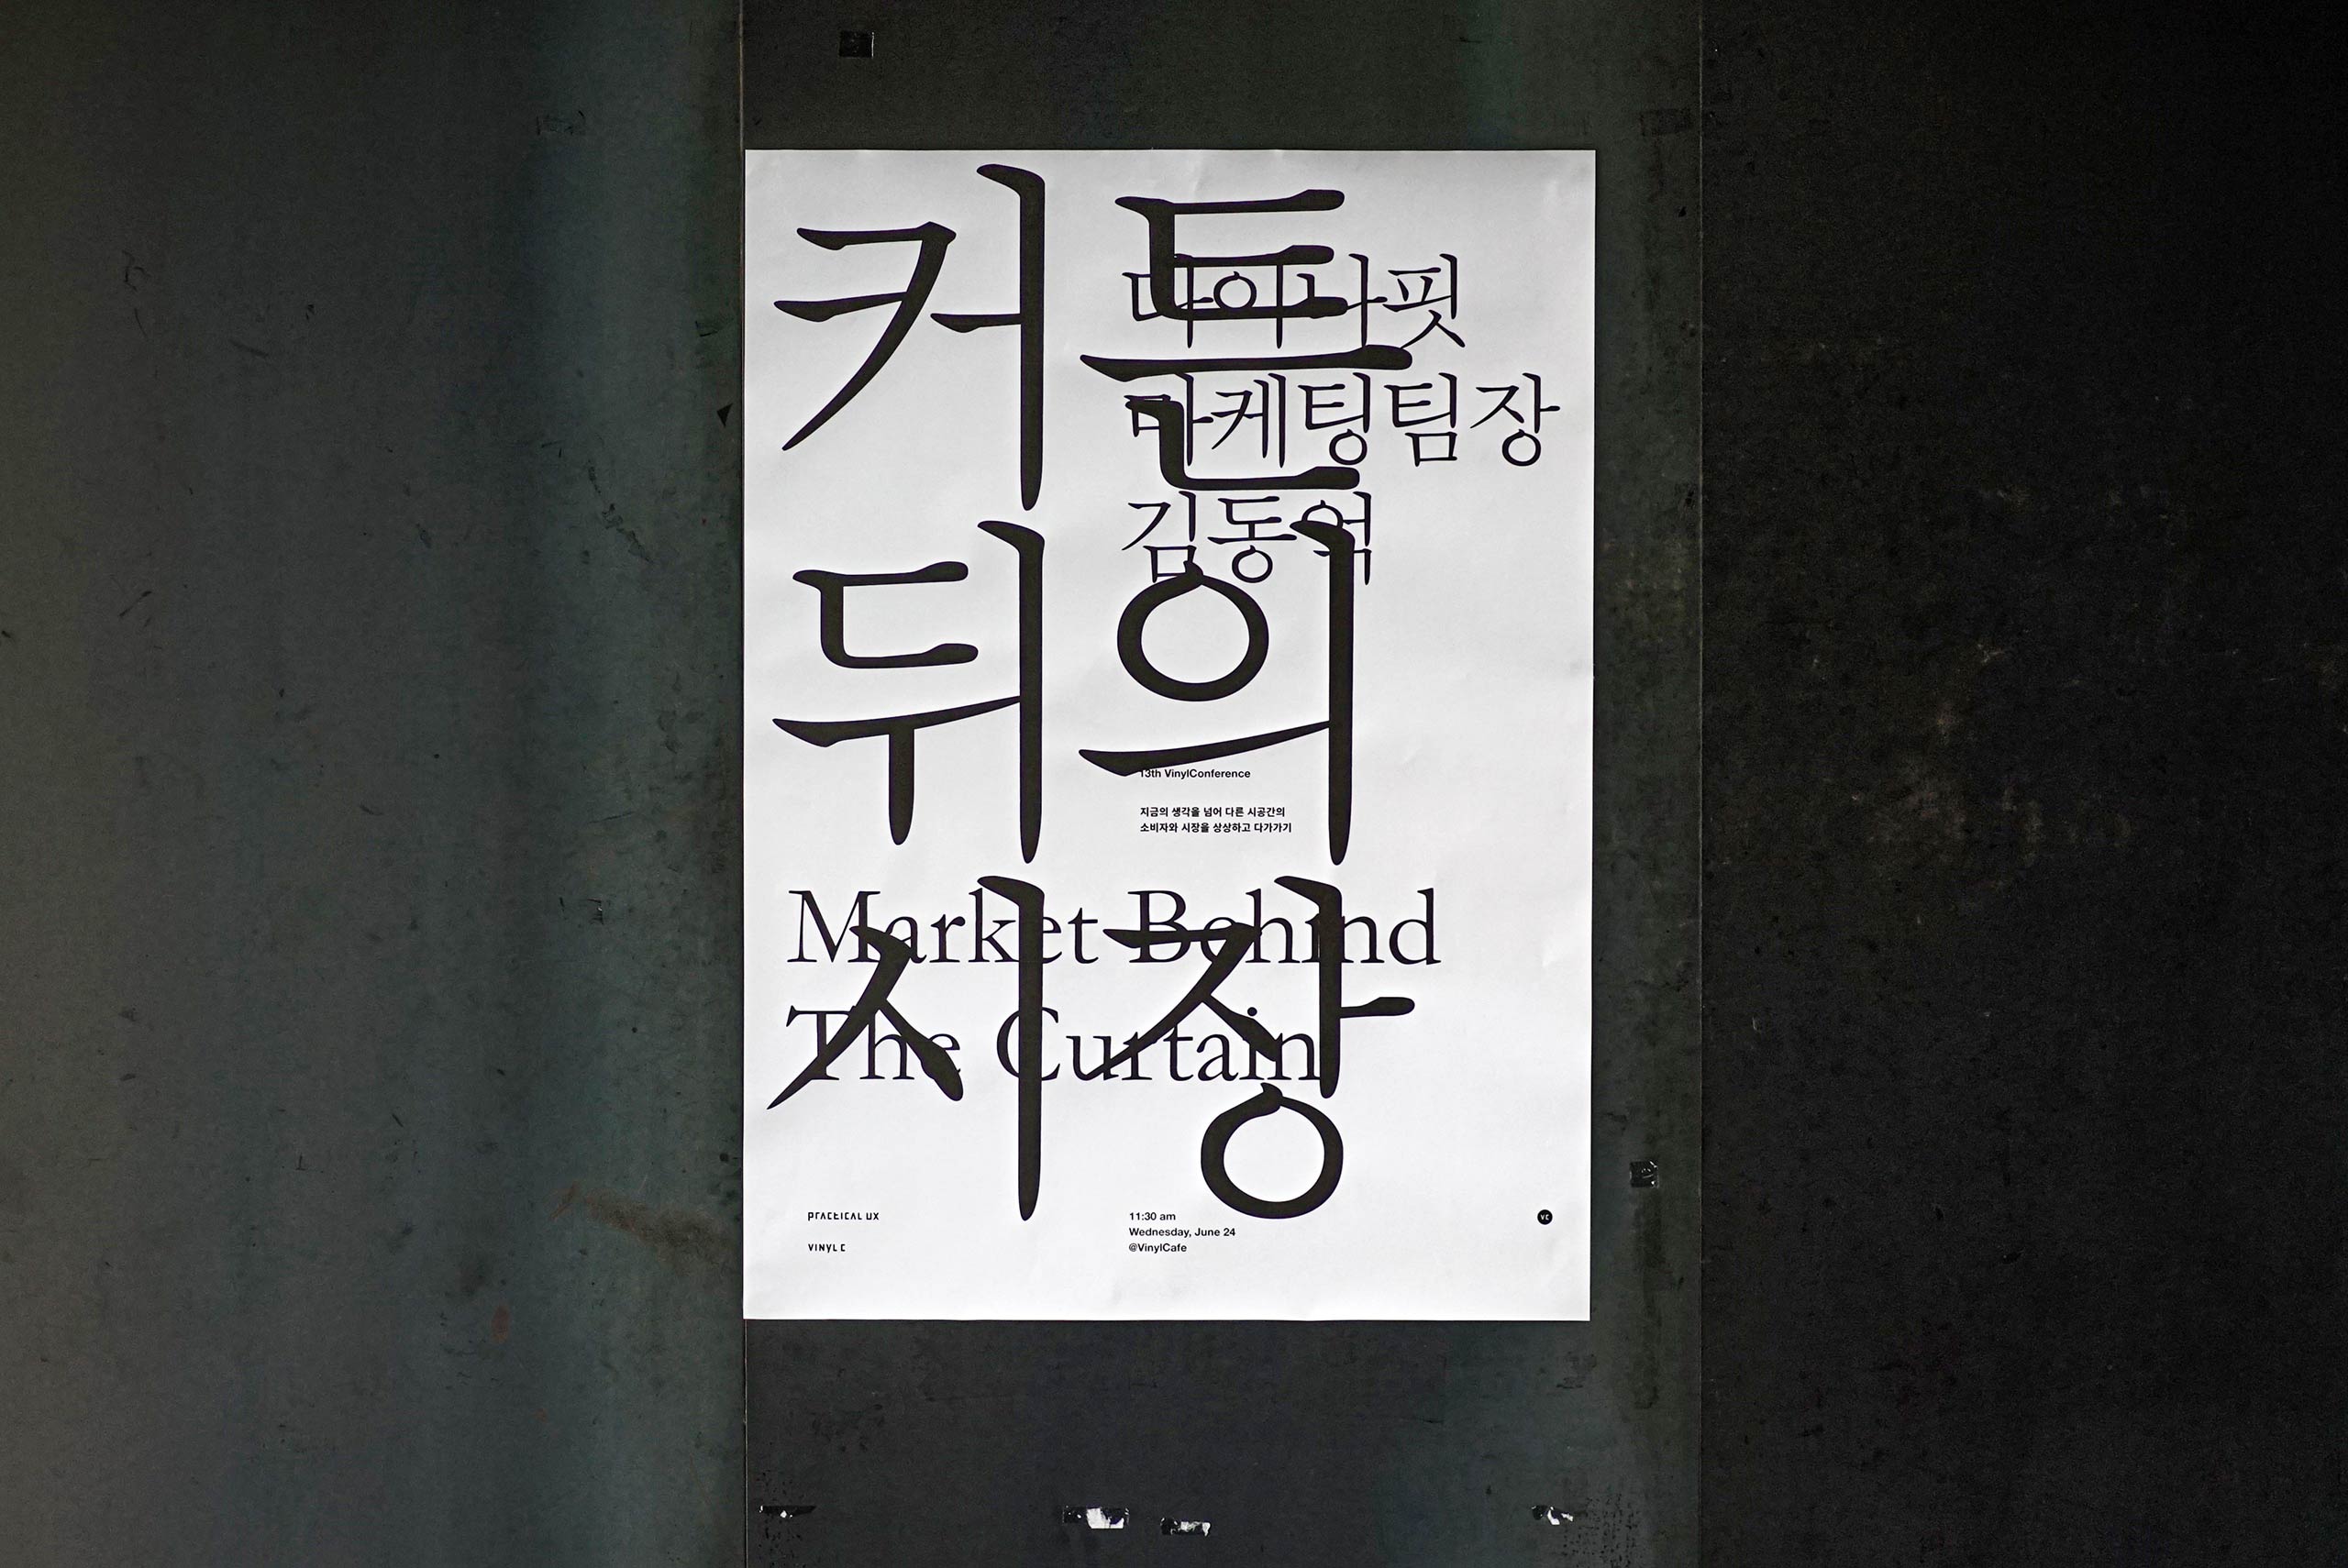 커튼
뒤의
시장
마이나핏
마케팅팀장
김동억
13th VinylConference
지금의 생각을 넘어 다른 시공간의
소비자와 시장을 상상하고 다가가기
Market Behind
The Curtain
PRACTICAL UX
VINYL C
11:30 am
Wednesday, June 24
@VinylCafe
VC